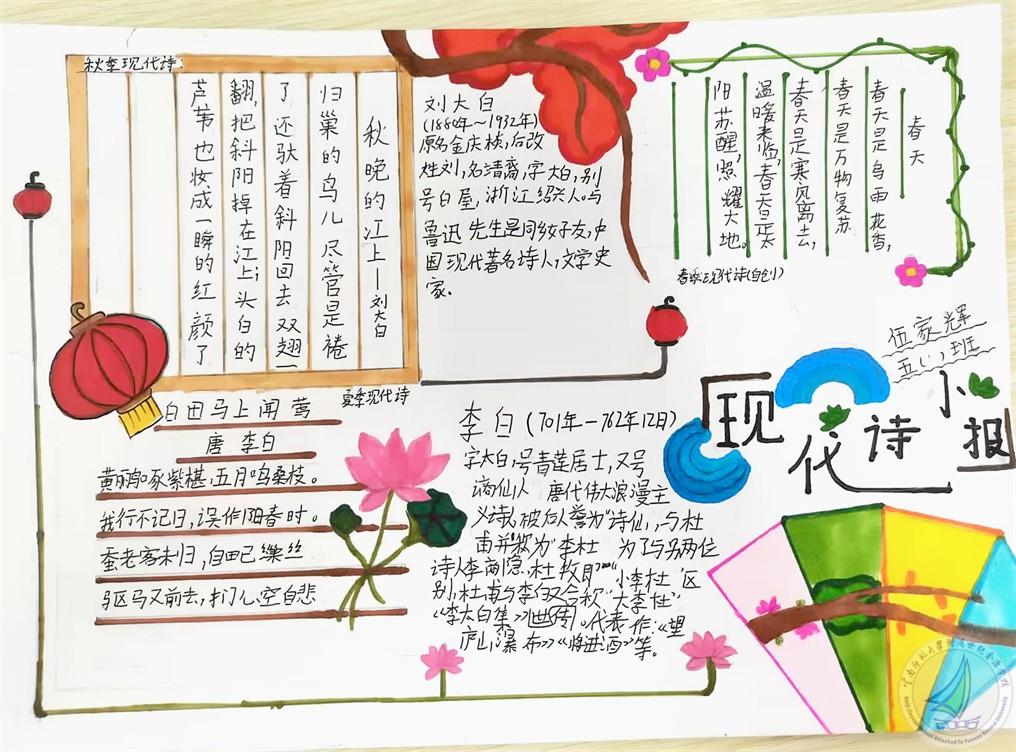 秋季现代诗
秋晚的江上——刘大白
归巢的鸟儿 尽管是倦
了 还驮着斜阳回去 双翅一
翻,把斜阳掉在江上;头白的
芦苇也妆成一瞬的红颜了
刘大白
(1880年～1932年)
原名金庆棪,后改
姓刘,名靖裔,字大白,别
号白屋,浙江绍兴人。与
鲁迅先生是同乡好友,中
国现代著名诗人,文学史
家。
春天
春天是鸟雨花香,
春天是万物复苏
春天是寒风离去,
温暖来临,春天是太
阳苏醒,照耀大地。
春季现代诗(自创)
伍家辉
五(1)班
现代诗小报
夏季现代诗
白田马上闻莺
唐 李白
黄鹂啄紫椹,五月鸣桑枝。
我行不记日,误作阳春时。
蚕老客未归,白田已缫丝
驱马又前去,扪心空自悲
李白(701年—762年12月)
字太白,号青莲居士,又号
谪仙人 唐代伟大浪漫主
义诗人 被后人誉为"诗仙",与杜
甫并称为"李杜 为了与另两位
诗人李商隐、杜牧即"小李杜"区
别,杜甫与李白又合称"大李杜"
《李太白集》传世。代表作:《望
庐山瀑布》《将进酒》等。